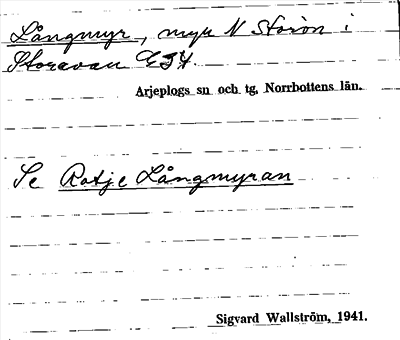 Långmyr, myr N Storön i
Storavan G34.
Arjeplogs sn och tg, Norrbottens län.
Se Ratje Långmyran
Sigvard Wallström, 1941.